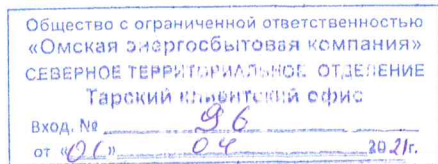 Общество с ограниченной ответственностью
«Омская энергосбытовая компания»
СЕВЕРНОЕ ТЕРРИТОРИАЛЬНОЕ ОТДЕЛЕНИЕ
Тарский клиентский офис
Вход. № 96
от «01» 04 2021г.